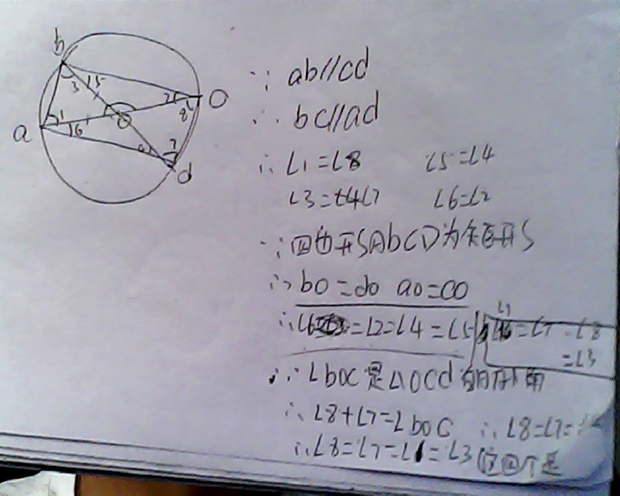 b
3 15
2 O
8
a 1
16
O
4 7
d
∵ ab//cd
∴ bc//ad
∴ ∠1=∠8 ∠5=∠4
∠3=∠7 ∠6=∠2
∵四边形AbCD为矩形
∴ bo=do ao=co
∴∠6=∠2=∠4=∠5 ∠1=∠7=∠8
=∠3
∵∠boc是△OCd的外角
∴∠8+∠7=∠boc ∴∠8=∠7=
∴∠8=∠7=∠1=∠3 这四个是